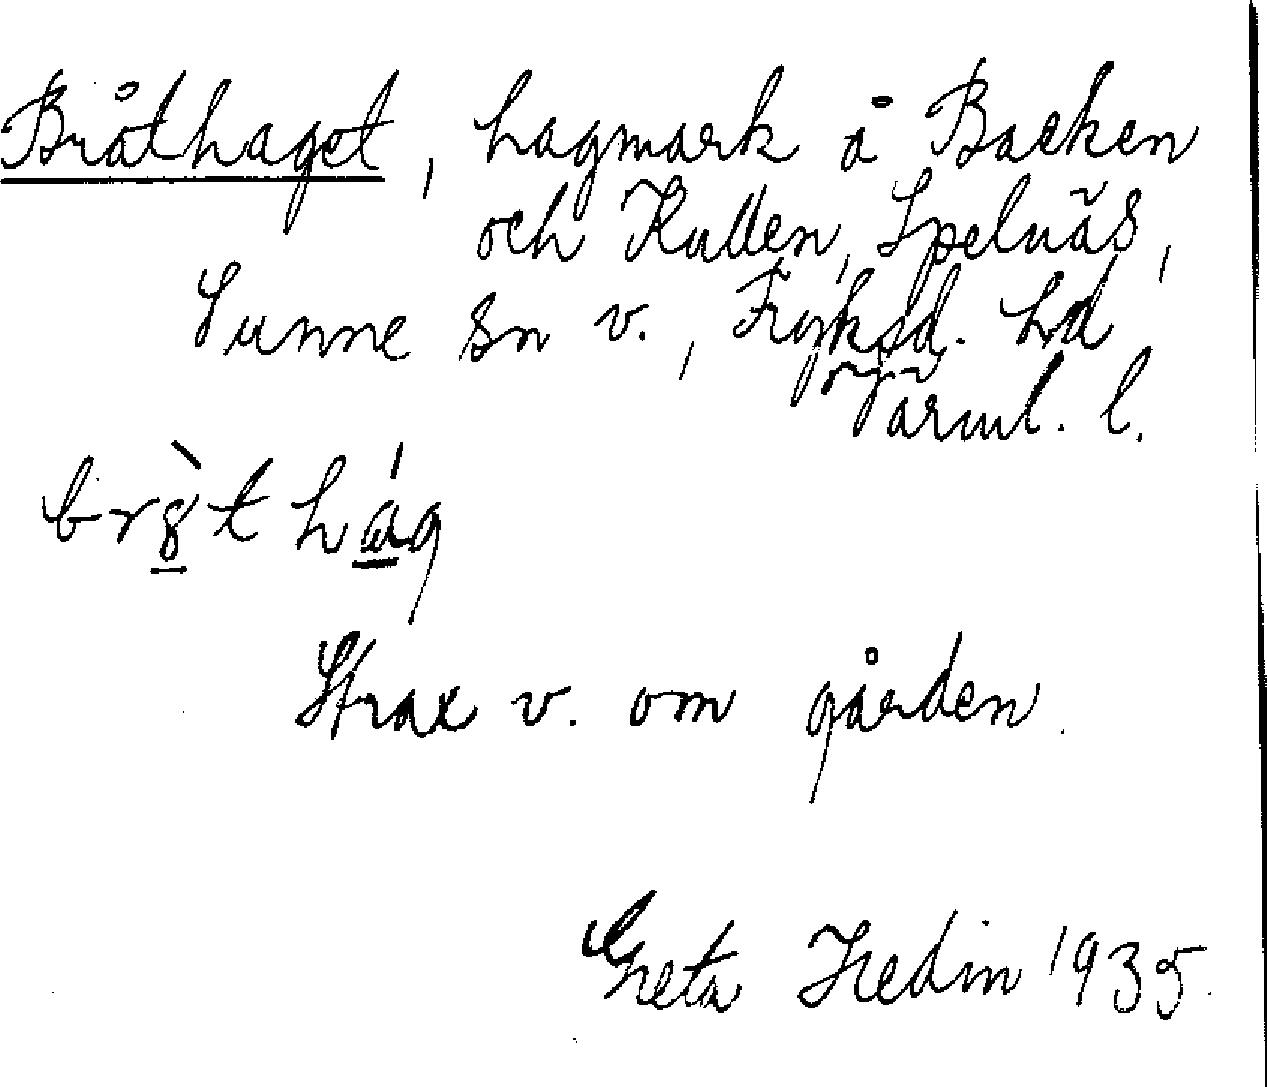 Bråthaget, hagmark å Backen
och Kullen, Spelnäs,
Sunne sn v., Fryksd. hd
Värml. l.
br8̲̀t há̲g
Strax v. om gården.
Greta Hedin 1935.